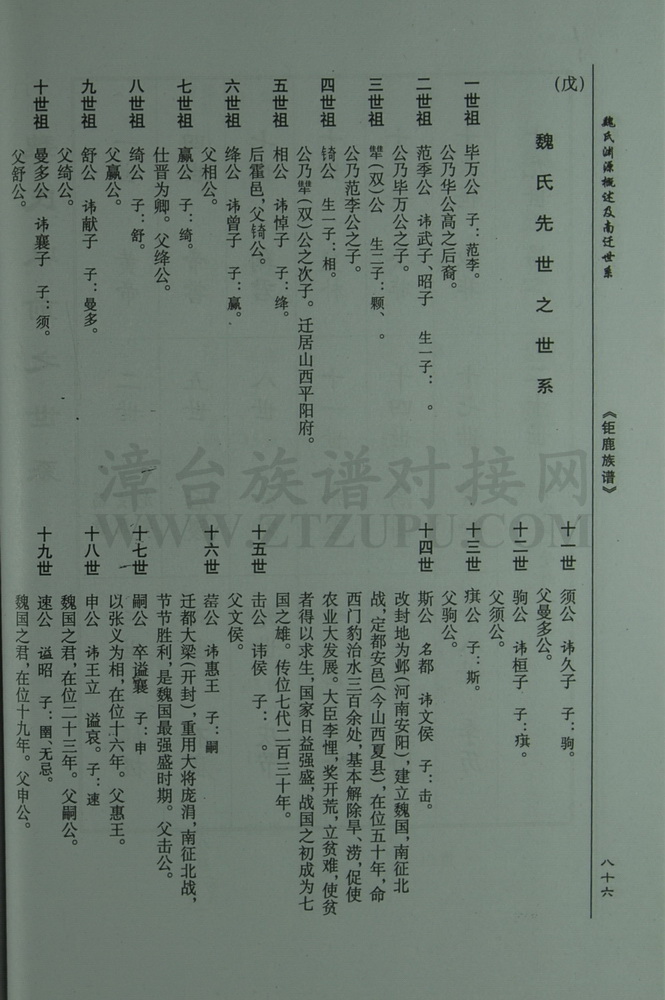 魏氏渊源概述及南迁世系
《钜鹿族谱》
八十六
(戊)
魏氏先世之世系
一世祖 毕万公 子：范李。
公乃华公高之后裔。
二世祖 范季公 讳武子、昭子 生一子： 。
公乃毕万公之子。
三世祖 犨(双)公 生二子：颗、 。
公乃范李公之子。
四世祖 锜公 生一子：相。
公乃犨(双)公之次子。迁居山西平阳府。
五世祖 相公 讳悼子 子：绛。
后霍邑，父锜公。
六世祖 绛公 讳曾子 子：赢。
父相公。
七世祖 赢公 子：绮。
仕晋为卿。父绛公。
八世祖 绮公 子：舒。
父赢公。
九世祖 舒公 讳献子 子：曼多。
父绮公。
十世祖 曼多公 讳襄子 子：须。
父舒公。
十一世 须公 讳久子 子：驹。
父曼多公。
十二世 驹公 讳桓子 子：琪。
父须公。
十三世 琪公 子：斯。
父驹公。
十四世 斯公 名都 讳文侯 子：击。
改封地为邺(河南安阳)，建立魏国，南征北
战，定都安邑(今山西夏县)，在位五十年，命
西门豹治水三百余处，基本解除旱、涝，促使
农业大发展。大臣李悝，奖开荒，立贫难，使贫
者得以求生，国家日益强盛，战国之初成为七
国之雄。传位七代二百三十年。
十五世 击公 讳侯 子： 。
父文侯。
十六世 䓨公 讳惠王 子：嗣
迁都大梁(开封)，重用大将庞涓，南征北战，
节节胜利，是魏国最强盛时期。父击公。
十七世 嗣公 卒谥襄 子：申
以张义为相，在位十六年。父惠王。
十八世 申公 讳王立 谥哀。子：速
魏国之君，在位二十三年。父嗣公。
十九世 速公 谥昭 子：圉、无忌。
魏国之君，在位十九年。父申公。
漳台族谱对接网
WWW.ZTZUPU.COM